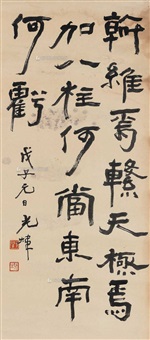 斡維焉繫天極焉
加八柱何當東南
何虧
戊子元日光